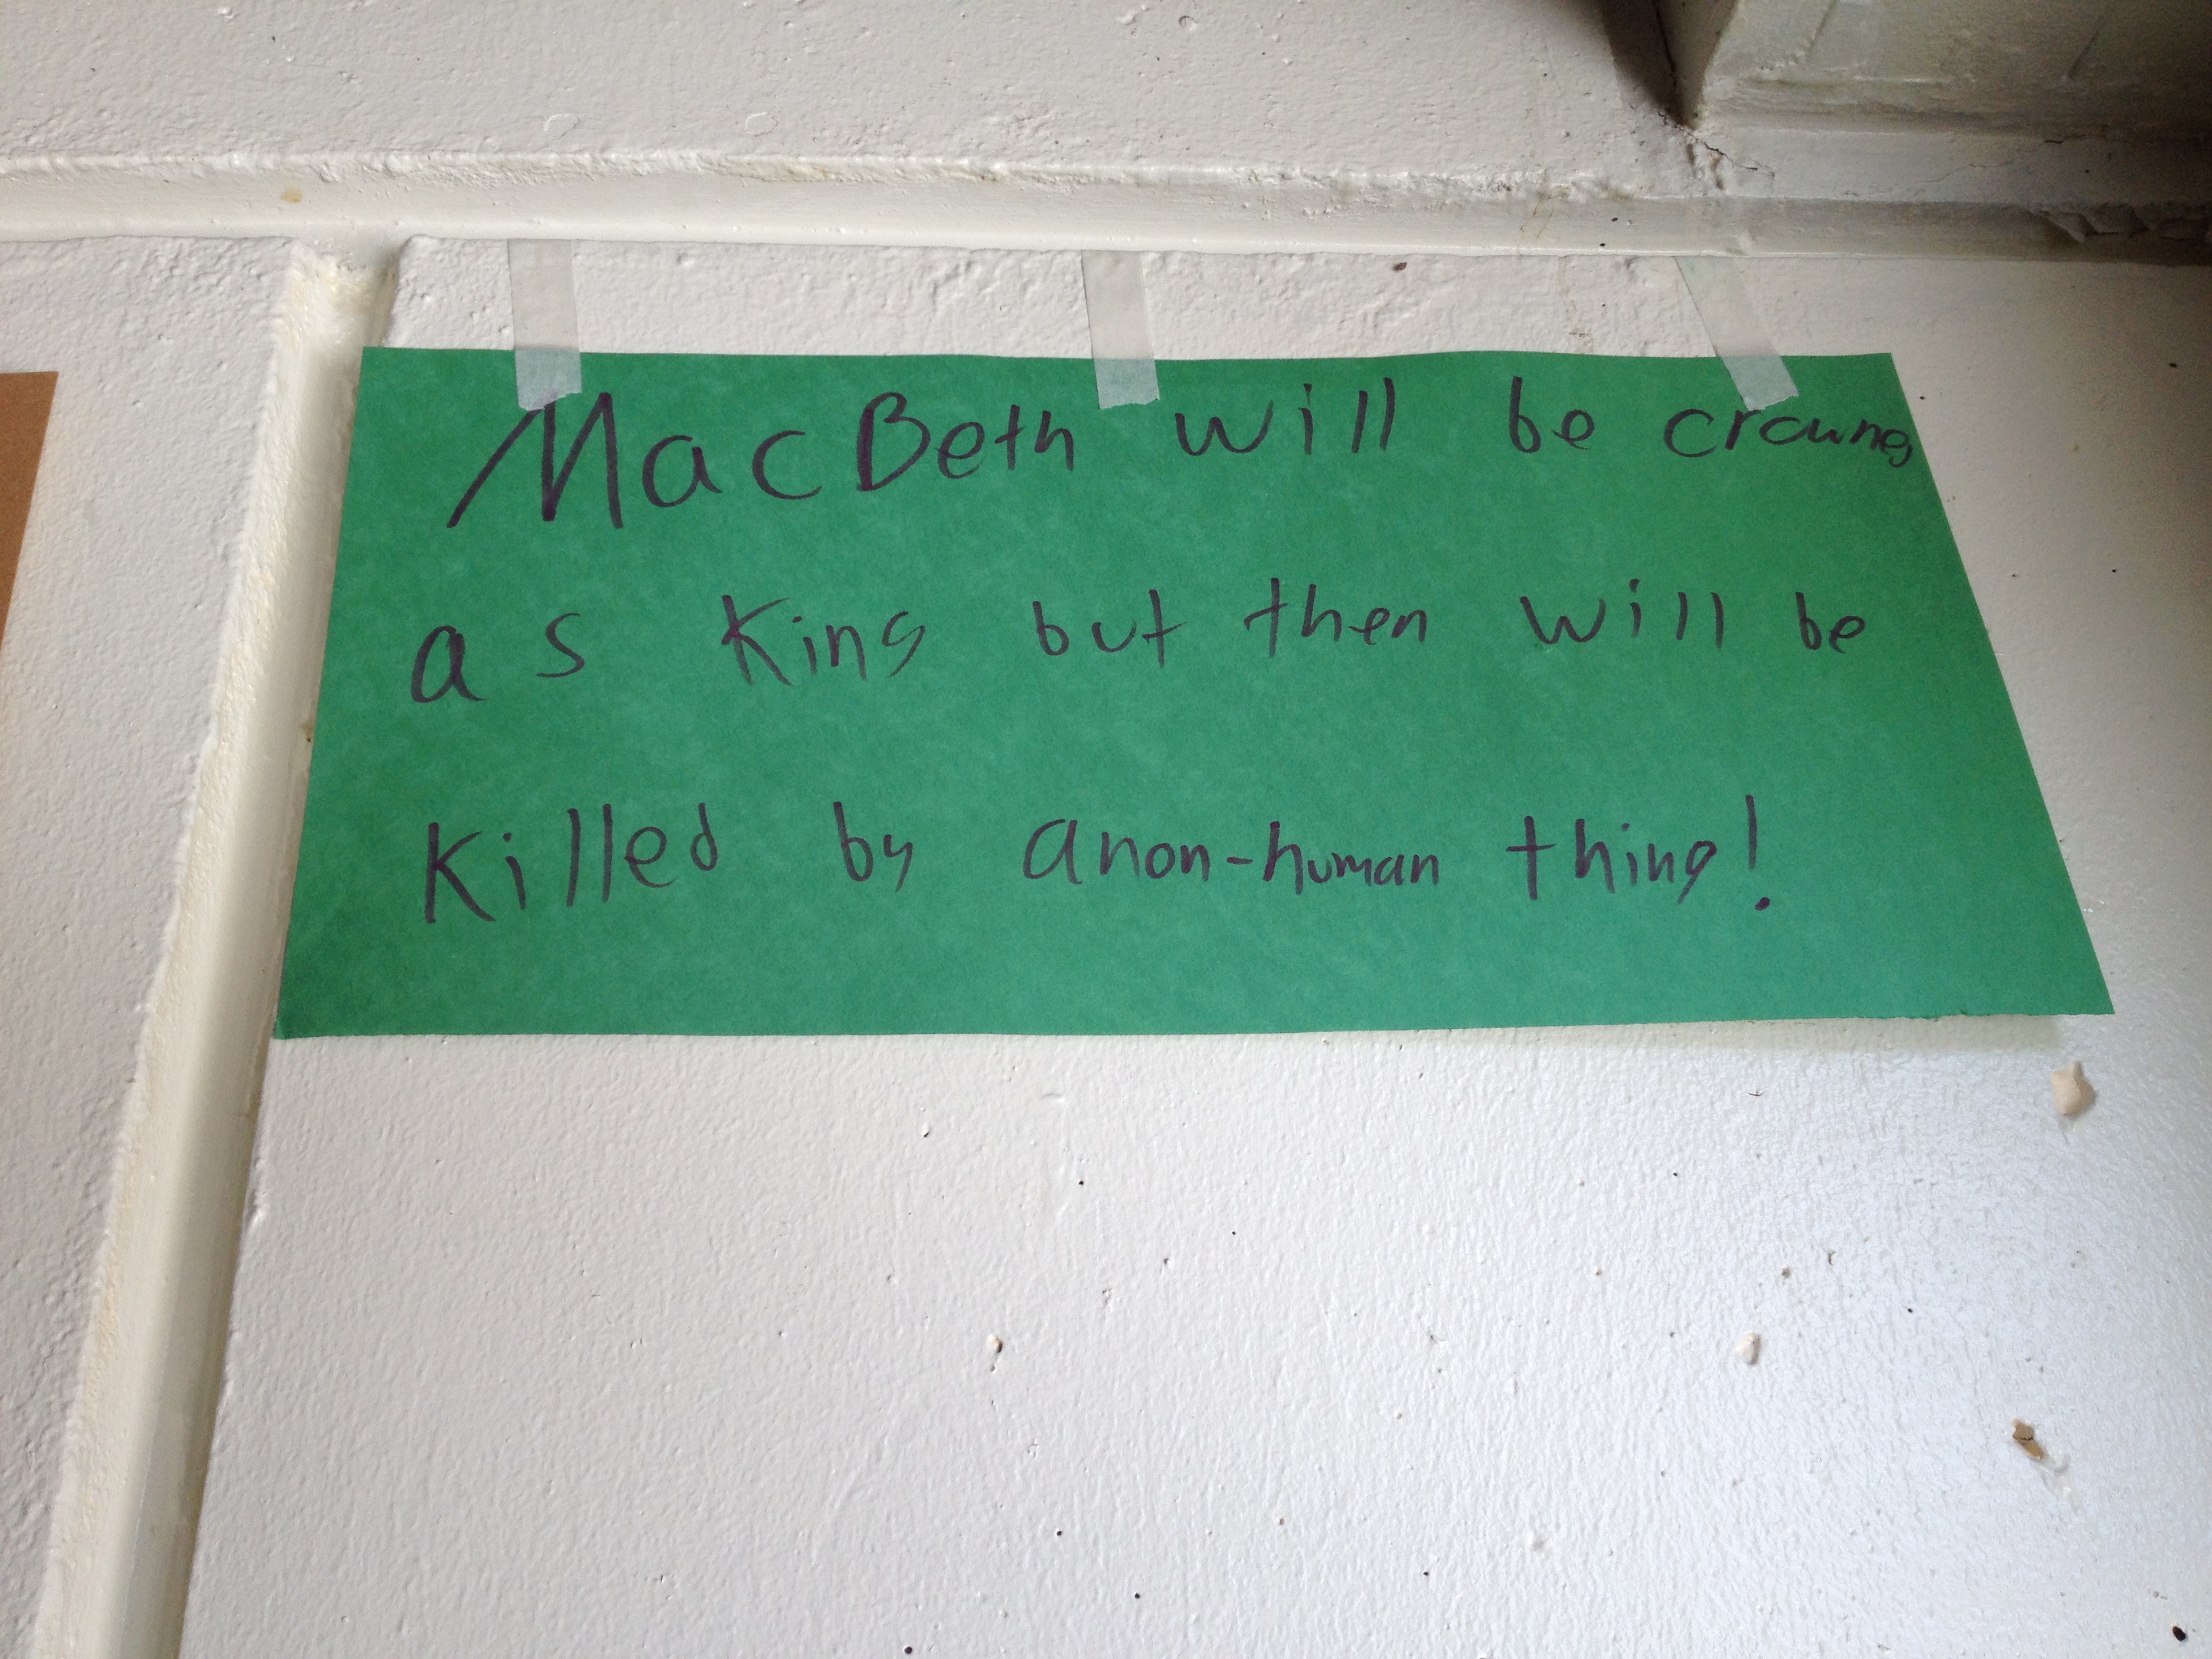 MacBeth will be crowned
as King but then will be
Killed by anon-human thing!